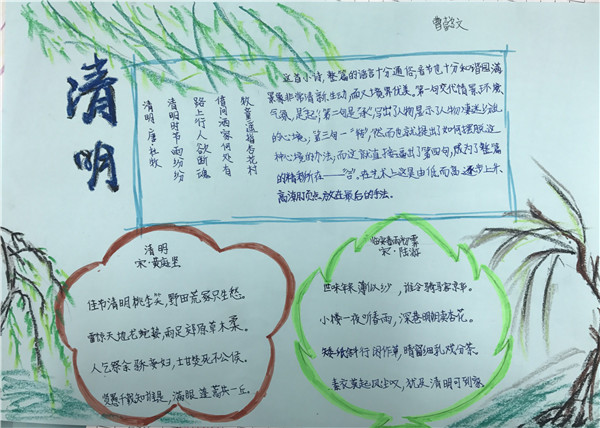 清明
清明 唐·杜牧
清明时节雨纷纷
路上行人欲断魂
借问酒家何处有
牧童遥指杏花村
这首小诗，整篇的语言十分通俗，音节也十分和谐圆满
景象非常清新、生动，而又境界优美。第一句交代情景、环境
气氛，是"起"；第二句是"承"，写出了人物，显示了人物凄迷纷乱
的心境，第三句一"转"，然而也就提出了如何摆脱这
种心境的办法；而这就直接逼出了第四句，成为了整篇
的精彩所在——"合"。在艺术上这是由低而高逐步上升
高潮顶点放在最后的手法。
清明
宋·黄庭坚
佳节清明桃李笑，野田荒冢只生愁。
雷惊天地龙蛇蛰，雨足郊原草木柔。
人乞祭余骄妾妇，士甘焚死不公侯。
贤愚千载知谁是，满眼蓬蒿共一丘。
临安春雨初霁
宋·陆游
世味年来薄似纱，谁令骑马客京华。
小楼一夜听春雨，深巷明朝卖杏花。
矮纸斜行闲作草，晴窗细乳戏分茶。
素衣莫起风尘叹，犹及清明可到家。